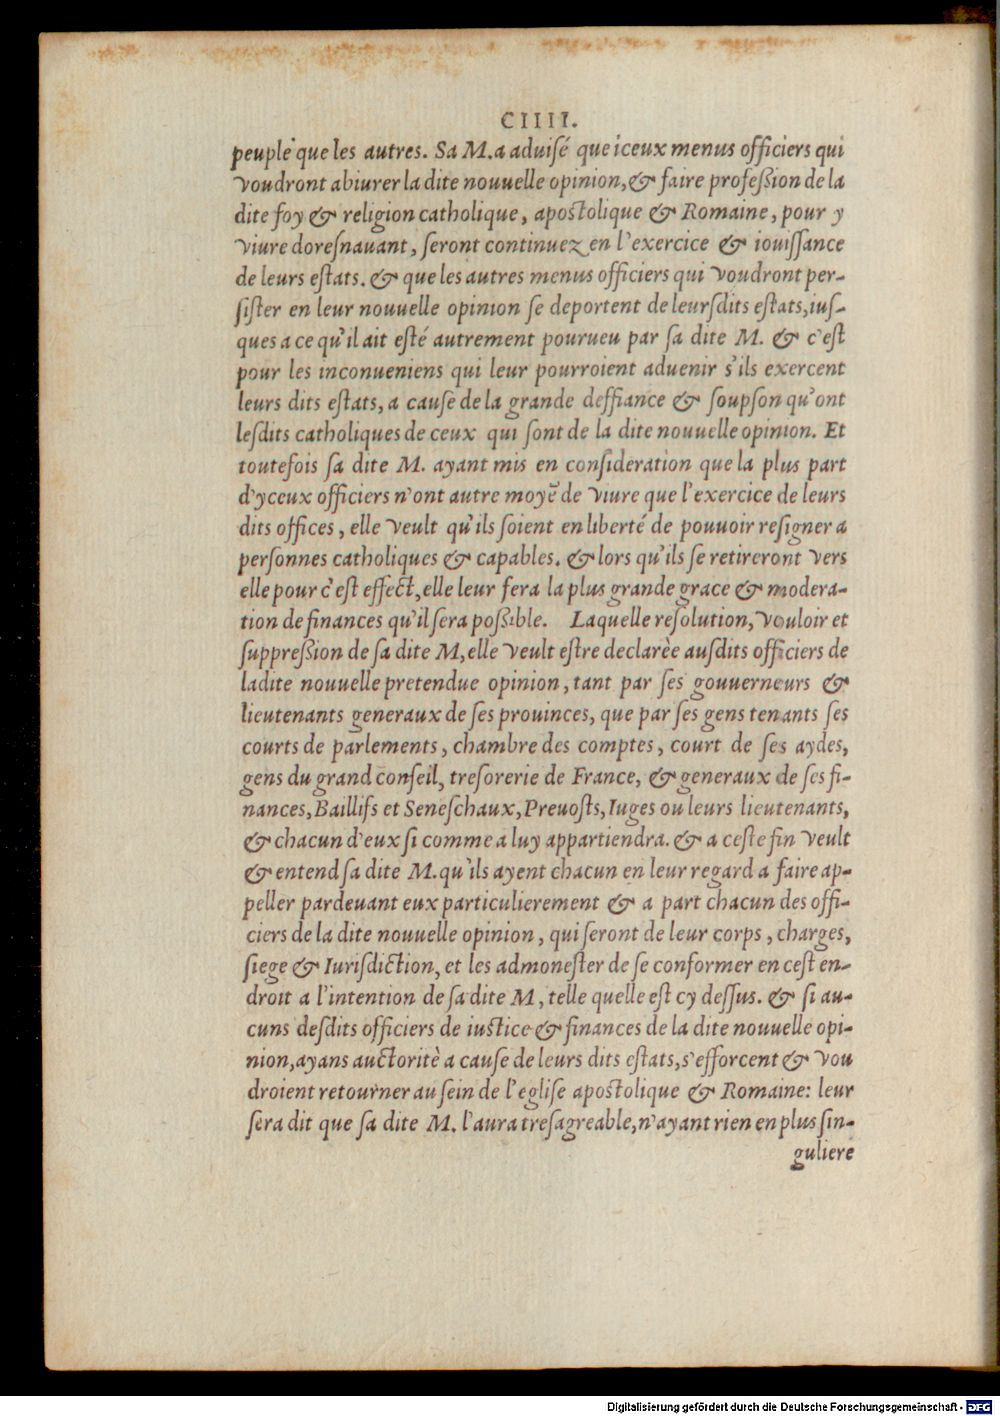 CIIII.
peuple que les autres. Sa M. a aduisé que iceux menus officiers qui
voudront abiurer la dite nouuelle opinion, & faire profeßion de la
dite foy & religion catholique, apostolique & Romaine, pour y
viure doresnauant, seront continuez en l'exercice & iouissance
de leurs estats. & que les autres menus officiers qui voudront per-
sister en leur nouuelle opinion se deportent de leursdits estats, ius-
ques a ce qu'il ait esté autrement pourueu par sa dite M. & c'est
pour les inconueniens qui leur pourroient aduenir s'ils exercent
leurs dits estats, a cause de la grande deffiance & soupson qu'ont
lesdits catholiques de ceux qui sont de la dite nouuelle opinion. Et
toutefois sa dite M. ayant mis en consideration que la plus part
d'yceux officiers n'ont autre moyẽ de viure que l'exercice de leurs
dits offices, elle veult qu'ils soient en liberté de pouuoir resigner a
personnes catholiques & capables. & lors qu'ils se retireront vers
elle pour c'est effect, elle leur fera la plus grande grace & modera-
tion de finances qu'il sera poßible. Laquelle resolution, vouloir et
suppreßion de sa dite M, elle veult estre declarèe ausdits officiers de
ladite nouuelle pretendue opinion, tant par ses gouuerneurs &
lieutenants generaux de ses prouinces, que par ses gens tenants ses
courts de parlements, chambre des comptes, court de ses aydes,
gens du grand conseil, tresorerie de France, & generaux de ses fi-
nances, Baillifs et Seneschaux, Preuosts, Iuges ou leurs lieutenants,
& chacun d'eux si comme a luy appartiendra. & a ceste fin veult
& entend sa dite M. qu'ils ayent chacun en leur regard a faire ap-
peller pardeuant eux particulierement & a part chacun des offi-
ciers de la dite nouuelle opinion, qui seront de leur corps, charges,
siege & Iurisdiction, et les admonester de se conformer en cest en-
droit a l'intention de sa dite M, telle quelle est cy dessus. & si au-
cuns desdits officiers de iustice & finances de la dite nouuelle opi-
nion, ayans auctoritè a cause de leurs dits estats, s'efforcent & vou
droient retourner au sein de l'eglise apostolique & Romaine: leur
sera dit que sa dite M. l'aura tresagreable, n'ayant rien en plus sin-
guliere
Digitalisierung gefördert durch die Deutsche Forschungsgemeinschaft - DFG